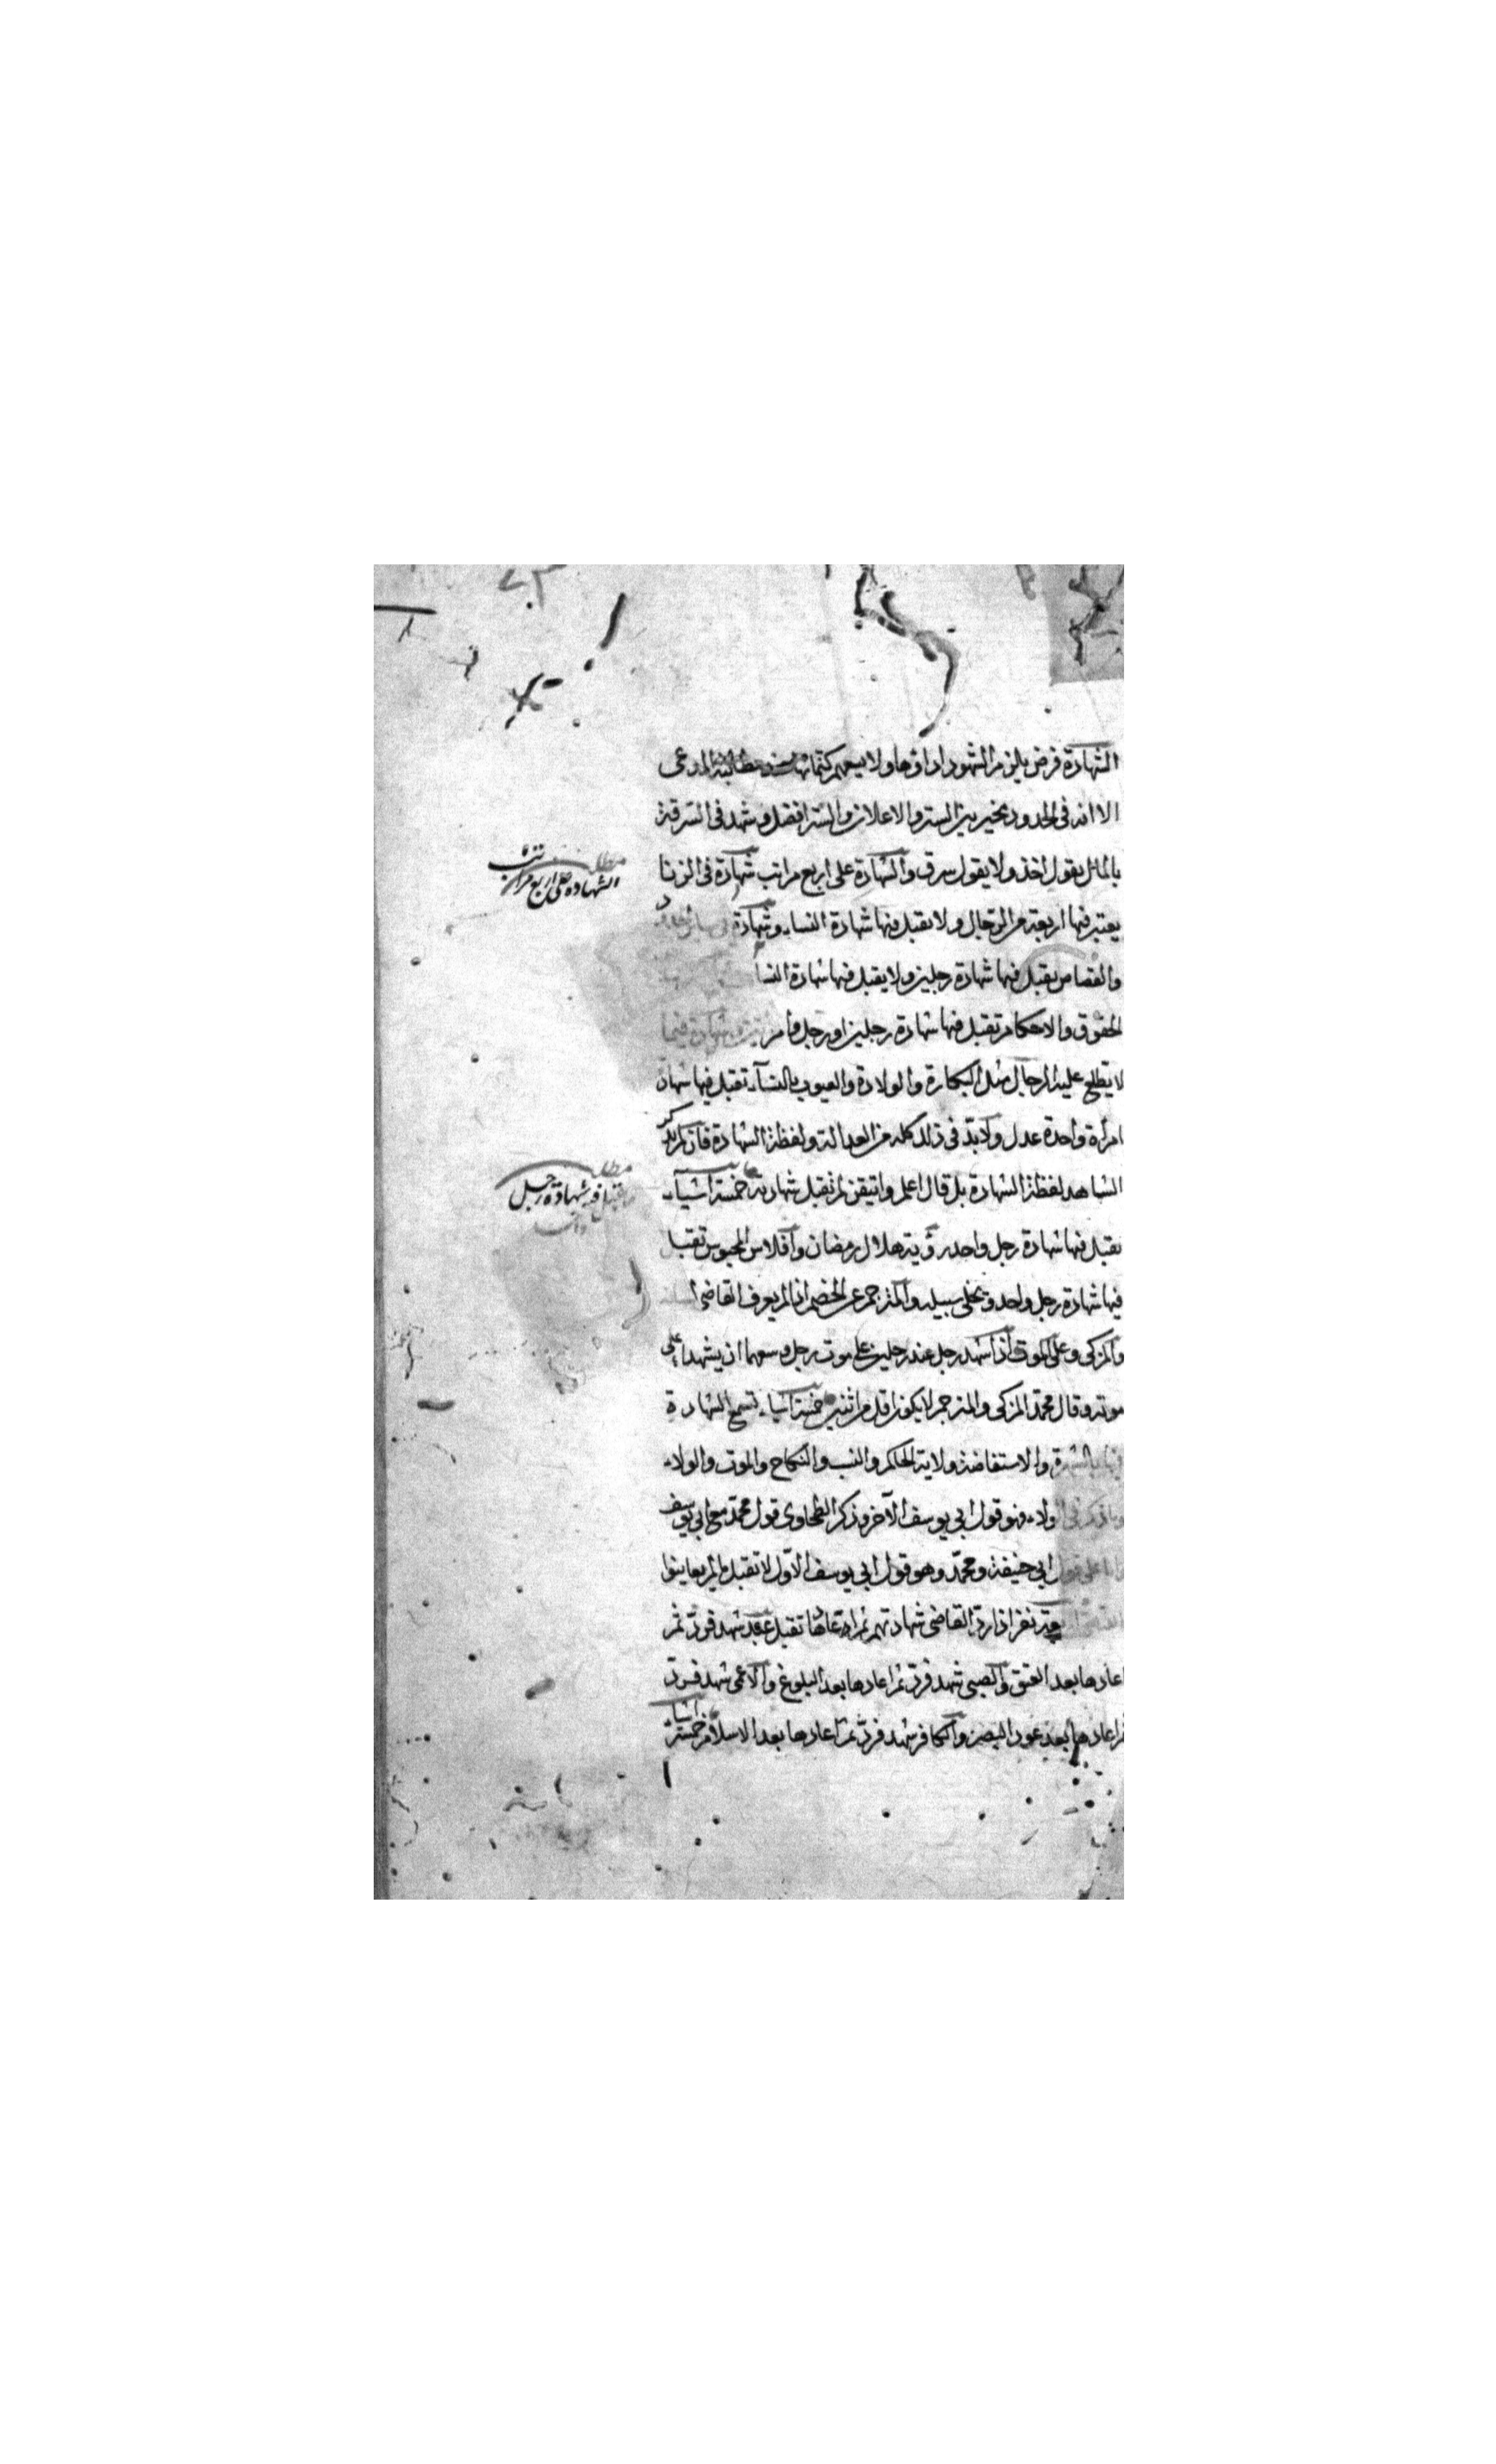 الشهادة فرض يلزم الشهود اداؤها ولا يسعهم كتمانها عند مطالبة المدعى
الا انه فى الحدود مخير بين الستر والاعلان والستر افضل وشهد فى السرقة
بالمال يقول اخذ ولا يقول سرق والشهادة على اربع مراتب شهادة فى الزنا
يعتبر فيها اربعة من الرجال ولا يقبل فيها شهادة النساء وشهادة
والقصاص يقبل فيها شهادة رجلين ولا يقبل فيها شهادة النسا
الحقوق والاحكام تقبل فيها شهادة رجلين او رجل وامر وشهادة فيما
لا يطلع عليه الرجال مثل البكارة والولادة والعيوب بالنسآء تقبل فيها شهادة
امرأة واحدة عدل ولا بد فى ذلك كله من العدالة ولفظة الشهادة فان لم يذكر
الشاهد لفظة الشهادة بل قال اعلم واتيقن لم تقبل شهادته خمسة اشيآء
تقبل فيها شهادة رجل واحد رؤية هلال رمضان وافلاس المحبوس تقبل
فيها شهادة رجل واحد ويخلى سبيله والمترجم عن الخصم اذا لم يعرف القاضى لسانه
والمزكى وعلى الموت اذا شهد رجل عند رجلين على موت رجل وسعهما ان يشهدا على
موته وقال محمد المزكى والمترجم لا يكون اقل من اثنين خمسة اشياء تسمع الشهادة
فيها بالشهرة والاستفاضة ولاية الحاكم والنسب والنكاح والموت والولاء
ولاء فهو قول ابي يوسف الآخر وذكر الطحاوى قول محمد مع ابي يوسف
ابي حنيفة ومحمد وهو قول ابي يوسف الاول لا تقبل ما لم يعاينوا
نفر اذا رد القاضى شهادتهم ثم اعادها تقبل عبد شهد فرد ثم
اعادها بعد العتق والصبى شهد فرد ثم اعادها بعد البلوغ والاعمى شهد فرد
ثم اعادها بعد عود البصر والكافر شهد فرد ثم اعادها بعد الاسلام خمسة اشياء
مطلب
الشهادة على اربع مراتب
مطلب
تقبل فيه شهادة رجل
واحد